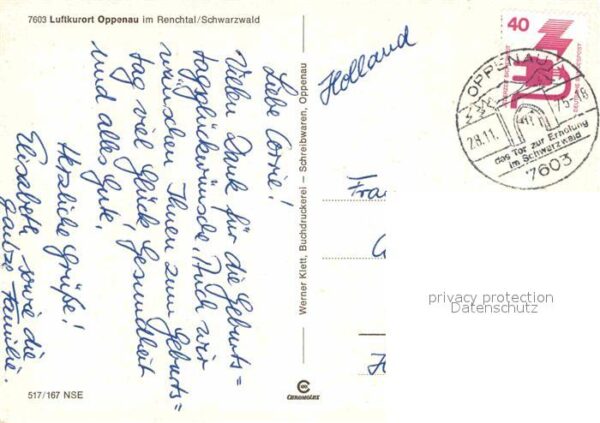 7603 Luftkurort Oppenau im Renchtal/Schwarzwald
Liebe Corrie!
Vielen Dank für die Geburts=
tagsglückwünsche. Auch wir
wünschen Ihnen zum Geburts=
tag viel Glück, Gesundheit
und alles Gute.
Herzliche Grüße!
Elisabeth sowie die
ganze Familie.
517/167 NSE
Werner Klett, Buchdruckerei – Schreibwaren, Oppenau
CEKOMOLEX
Holland
Frau
40
DEUTSCHE BUNDESPOST
OPPENAU
28.11.
15-18
das Tor zur Erholung
im Schwarzwald
7603
privacy protection
Datenschutz